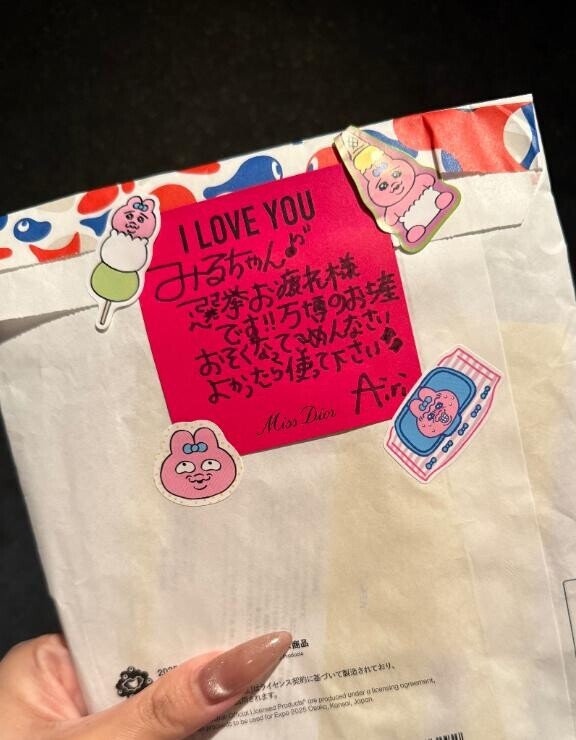 I LOVE YOU
みるちゃん♪
選挙お疲れ様
です!!万博のお土産
おそく なって ごめんなさい
よかったら使って下さい
Airi
Miss Dior
商品
はライセンス契約に基づいて製造されており、
Official Licensed Products" are produced under a licensing agreement,
to be used for Expo 2025 Osaka, Kansai, Japan.